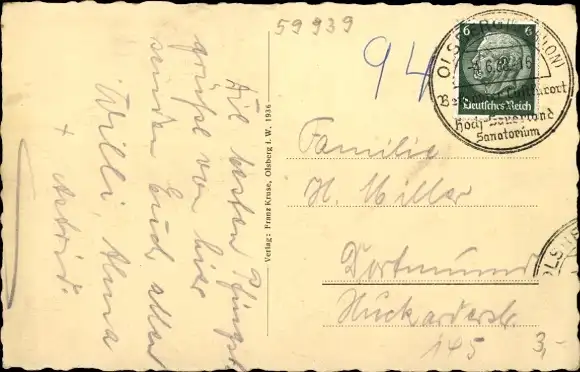 59939
94
Die besten Pfingst
grüße von hier
senden Euch allen
Willi, Alma
+ Astrid.
Verlag: Franz Kruse, Olsberg i. W. 1936
6 6
Deutsches Reich
OLSBERG
Luftkurort
Hoch-Sauerland
Sanatorium
Familie
H. Miller
Dortmund
Huckarderstr.
145
OLSBE
3,-